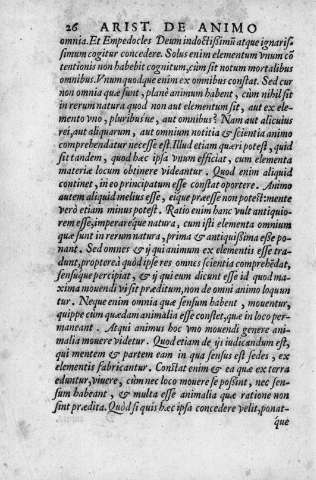 26 ARIST. DE ANIMO
omnia. Et Empedocles Deum indoctissimũ atque ignaris-
simum cogitur concedere. Solus enim elementum vnum cõ
tentionis non habebit cognitum, cùm sit notum mortalibus
omnibus. Vnumquodque enim ex omnibus constat. Sed cur
non omnia quæ sunt, planè animum habent, cùm nihil sit
in rerum natura quod non aut elementum sit, aut ex ele-
mento vno, pluribúsue, aut omnibus? Nam aut alicuius
rei, aut aliquarum, aut omnium notitia & scientia animo
comprehendatur necesse est. Illud etiam quæri potest, quid
sit tandem, quod hæc ipsa vnum efficiat, cùm elementa
materiæ locum obtinere videantur. Quod enim aliquid
continet, in eo principatum esse constat oportere. Animo
autem aliquid melius esse, eíque præesse non potest: mente
verò etiam minus potest. Ratio enim hanc vult antiquio-
rem esse, imperaréque natura, cùm isti elementa omnium
quæ sunt in rerum natura, prima & antiquissima esse po-
nant. Sed omnes & ij qui animum ex elementis esse tra-
dunt, propterea quòd ipse res omnes scientia comprehẽdat,
sensúque percipiat, & ij qui eum dicunt esse id quod ma-
xima mouendi vi sit præditum, non de omni animo loqun
tur. Neque enim omnia quæ sensum habent, mouentur,
quippe cùm quædam animalia esse constet, quæ in loco per-
maneant. Atqui animus hoc vno mouendi genere ani-
malia mouere videtur. Quod etiam de ijs iudicandum est,
qui mentem & partem eam in qua sensus est sedes, ex
elementis fabricantur. Constat enim & ea quæ ex terra
eduntur, viuere, cùm nec loco mouere se possint, nec sen-
sum habeant, & multa esse animalia quæ ratione non
sint prædita. Quòd si quis hæc ipsa concedere velit, ponat-
que